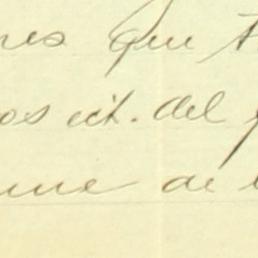 res que t
os ect. del
une de